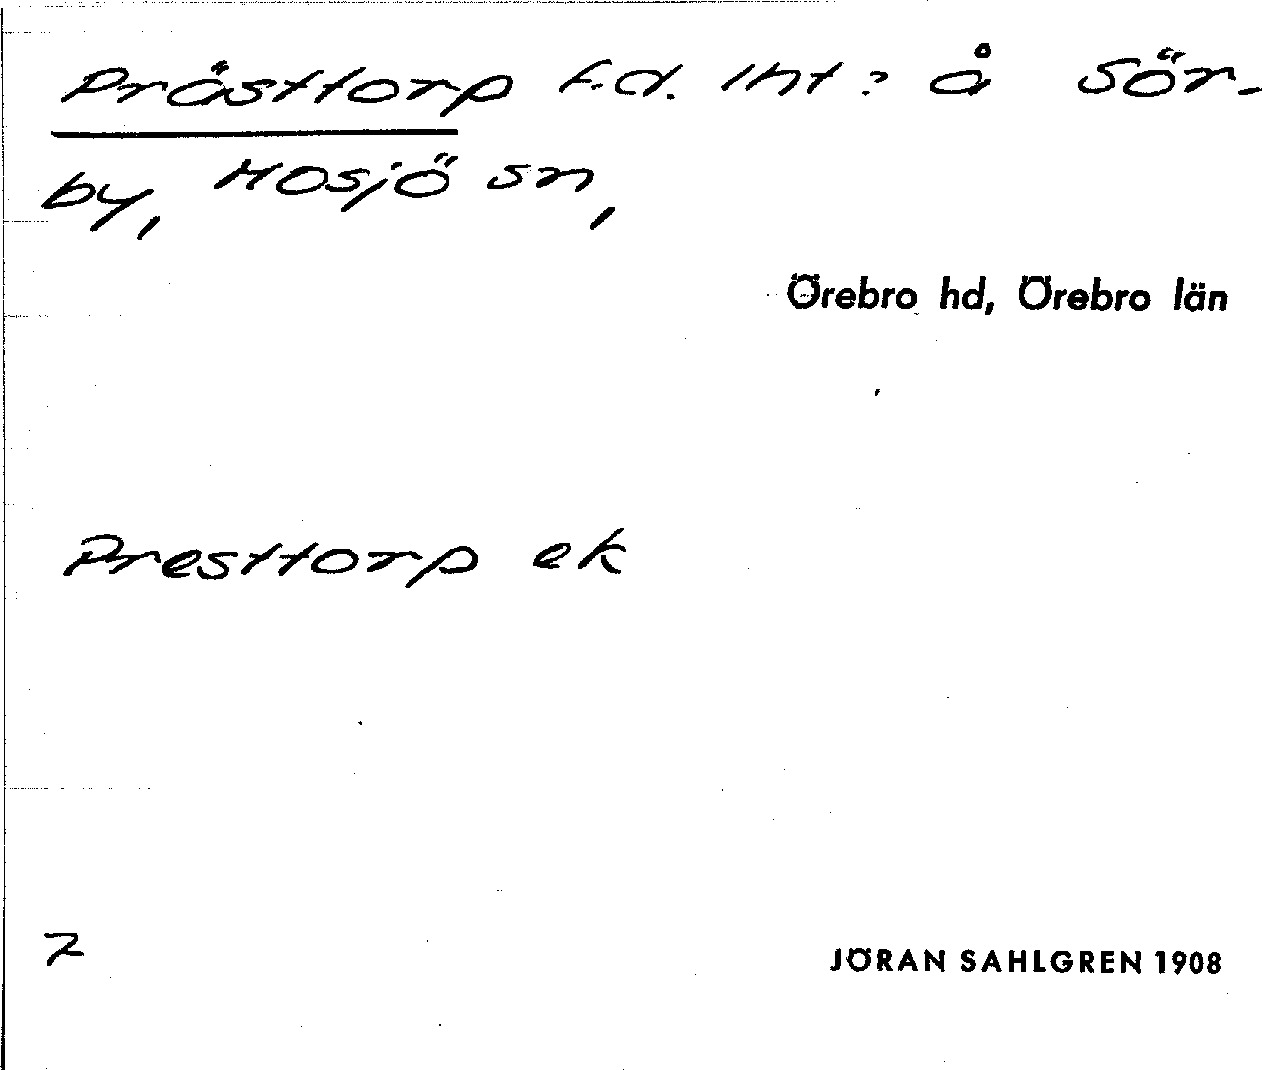 Prästtorp f.d. lht? å Sör-
by, Mosjö sn,
Örebro hd, Örebro län
Presttorp ek
7
JÖRAN SAHLGREN 1908